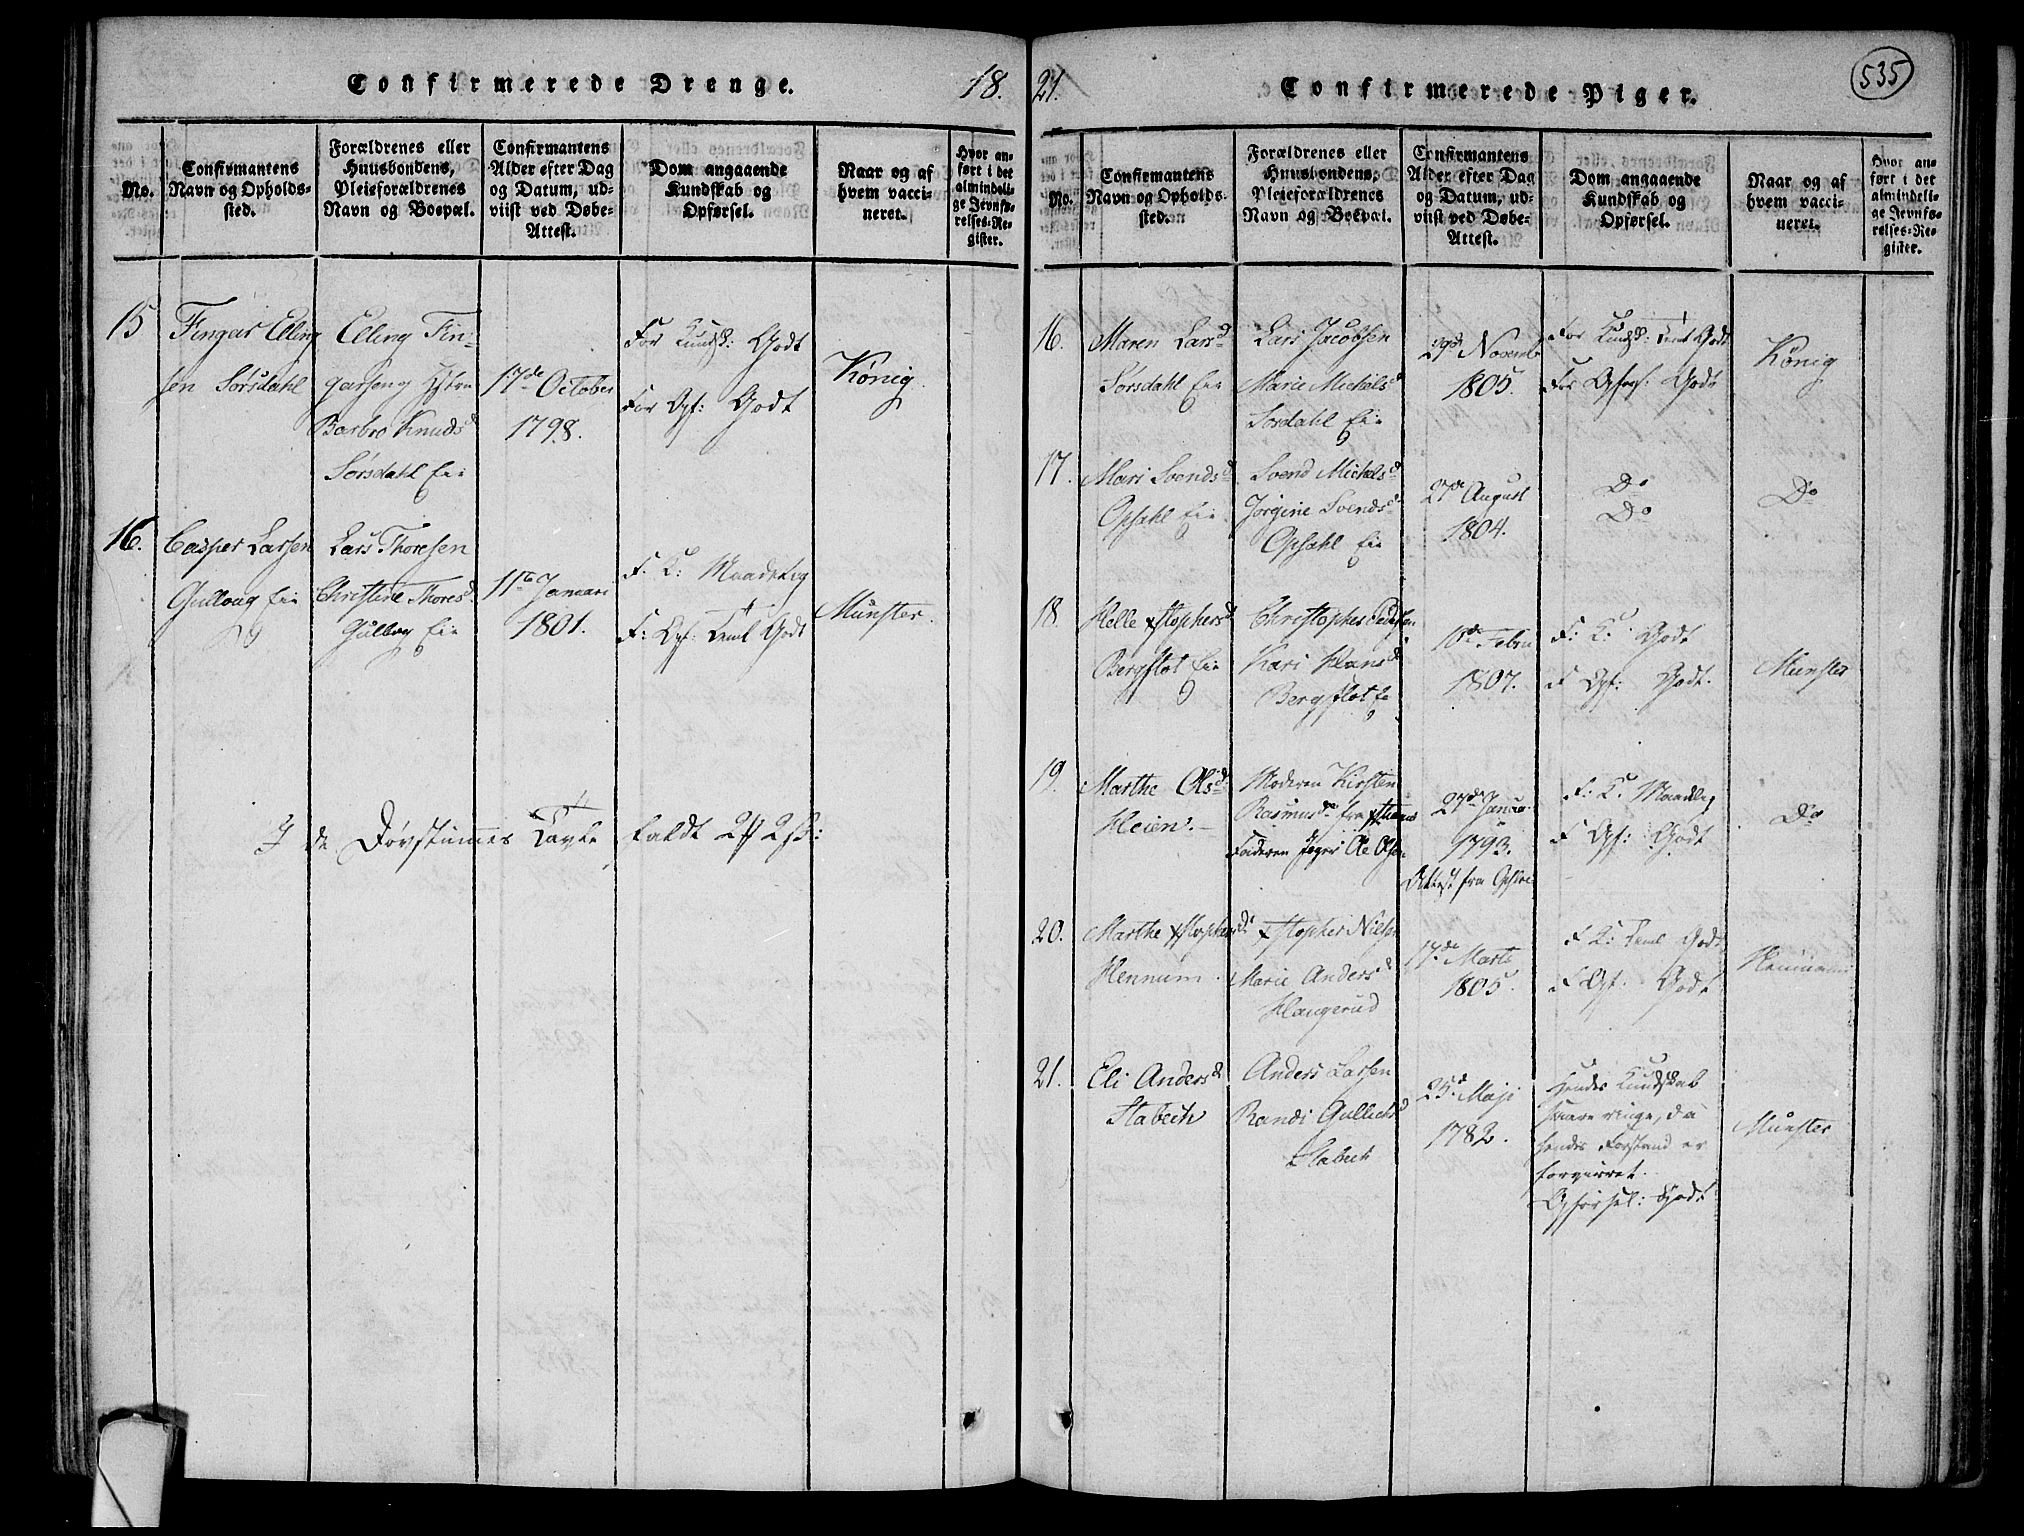 Confirmerede Drenge.
18.
No.
Confirmantens
Navn og Opholds-
sted.
Forældrenes eller
Huusbondens,
Pleieforældrenes
Navn og Boepæl.
Confirmantens
Alder efter Dag
og Datum, ud-
viist ved Døbe-
Attest.
Dom angaaende
Kundskab og
Opførsel.
Naar og af
hvem vacci-
neret.
Hvor an-
ført i det
almindeli-
ge Jevnfø-
relses-Re-
gister.
15
Fingar Elling
sen Sørsdahl
Elling Fin-
garsen
Barbro Knudsd
Sørsdahl Eie
17de October
1798.
For Kundsk: Godt
For Opf: Godt
König
16.
Casper Larsen
Gullaug Eie
Lars Thoresen
Christine Thoresd.
Gullog Eie
11te Januari
1801.
F. K: Maadelig
F: Opf: Teml Godt
Münster.
I de Døvstummes Tavle faldt
21.
Confirmerede Piger.
535
No.
Confirmantens
Navn og Opholds-
sted.
Forældrenes eller
Huusbondens,
Pleieforældrenes
Navn og Boepæl.
Confirmantens
Alder efter Dag
og Datum, ud-
viist ved Døbe-
Attest.
Dom angaaende
Kundskab og
Opførsel.
Naar og af
hvem vacci-
neret.
Hvor an-
ført i det
almindeli-
ge Jevnfø-
relses-Re-
gister.
16.
Maren Larsd
Sørsdahl Eie
Lars Jacobsen
Marie Michelsd
Sørdahl Eie
29de Novemb
1805.
For Kundsk: Teml Godt
For Opførs: Godt
König
17.
Mari Svendsd
Opsahl Eie
Svend Michels
Jørgine Svendsd
Opsahl Eie
27de August
1804.
Do
Do
Do
18.
Helle xstophersd
Bergflot Eie
Christopher Pedersen
Kari Hansd
Bergflot Eie
10de Febru
1807.
F: K: Godt
F Opf: Godt.
Münster
19.
Marthe Olsd
Heien.
Moderen Kirsten
Rasmusd fra
Faderen Jeger Ole Olsen
27de Janua
1793.
Attest fra
F: K: Maadelig
F Opf: Godt
Do
20.
Marthe xstophersd
Hennum.
xstopher Nilsen
Marie Andersd
Haugerud
17de Marts
1805.
F K: Teml Godt
F Opf. Godt
21.
Eli Andersd
Stabech
Anders Larsen
Randi Gullichsd
Stabech
25de Maji
1782.
Hendes Kundskab
saare ringe, da
hendes Forstand er
forvirret.
Opførsel: Godt
Münster